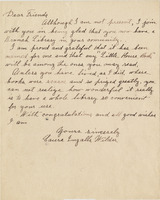 Dear Friends
Although I am not present, I join
with you in being glad that you now have a
Branch Library in your community.
I am proud and grateful that it has been
named for me and that my "Little House Books"
will be among the ones you may read.
Unless you have lived as I did where
books were scarce and so prized greatly, you
can not realize how wonderful it really
is to have a whole library so convenient
for your use.
With congratulations and all good wishes
I am
Yours sincerely
Laura Ingalls Wilder